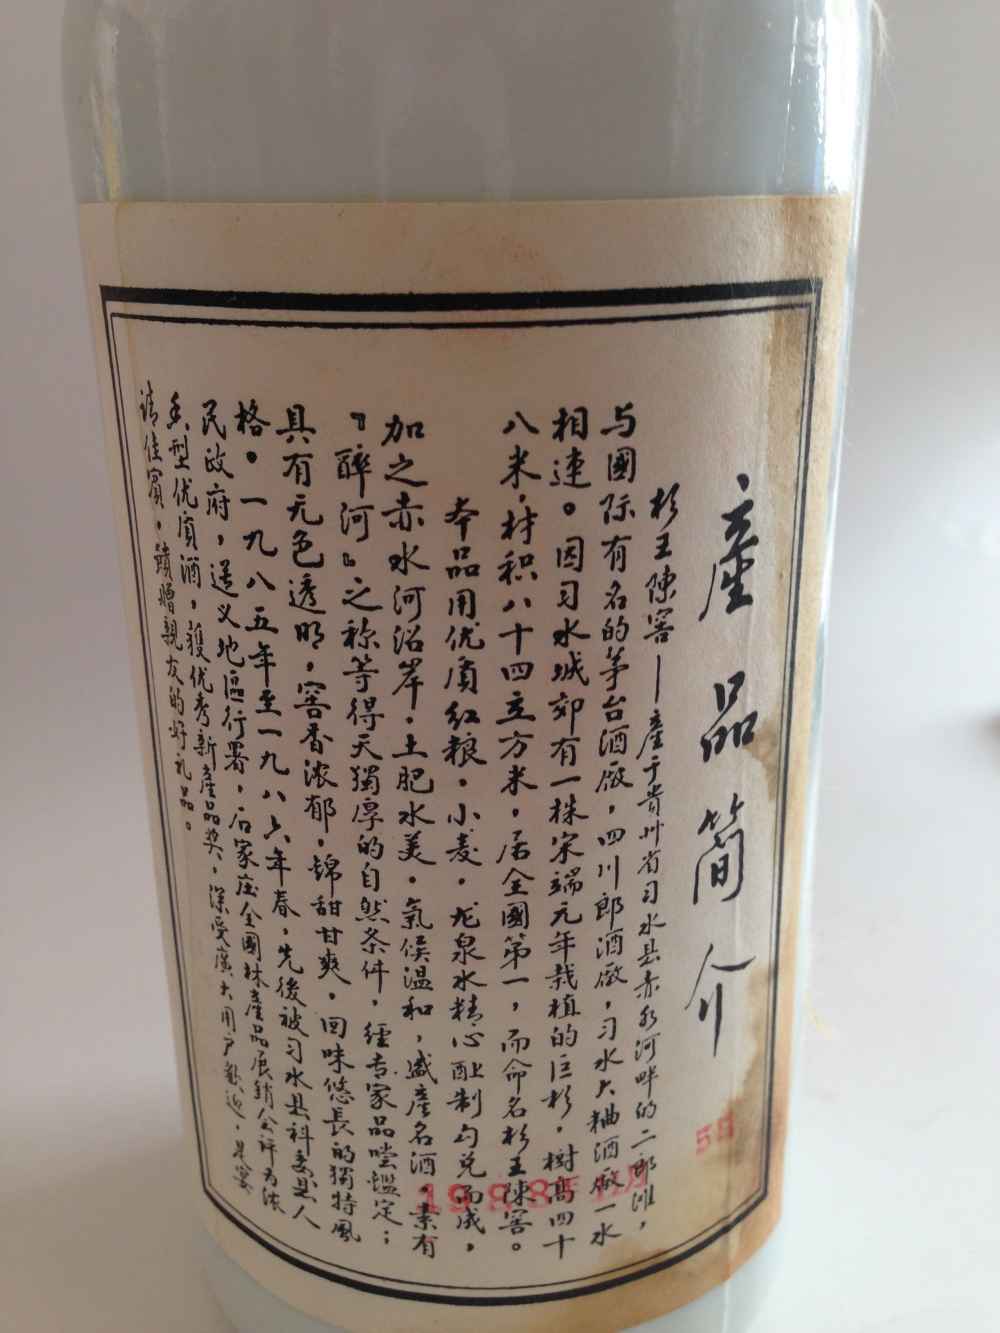 產品簡介
杉王陳窖—產于貴州省习水县赤水河畔的二郎滩，
与國际有名的茅台酒厰，四川郎酒厰，习水大麯酒厰一水
相連。因习水城郊有一株宋端元年栽植的巨杉，樹高四十
八米，材积八十四立方米，居全國第一，而命名杉王陳窖。
本品用优质红粮，小麦，龙泉水精心酿制勾兑而成，
加之赤水河沿岸，土肥水美，氣侯温和，盛產名酒，素有
『醉河』之称等得天獨厚的自然条件，經专家品嘗鑑定；
具有无色透明，窖香浓郁，锦甜甘爽，回味悠長的獨特風
格。一九八五年至一九八六年春，先後被习水县科委县人
民政府，遵义地區行署，石家庄全國林產品展銷会评为浓
香型优质酒，獲优秀新產品奖，深受廣大用户歡迎，是宴
请佳賓，馈赠親友的好礼品。